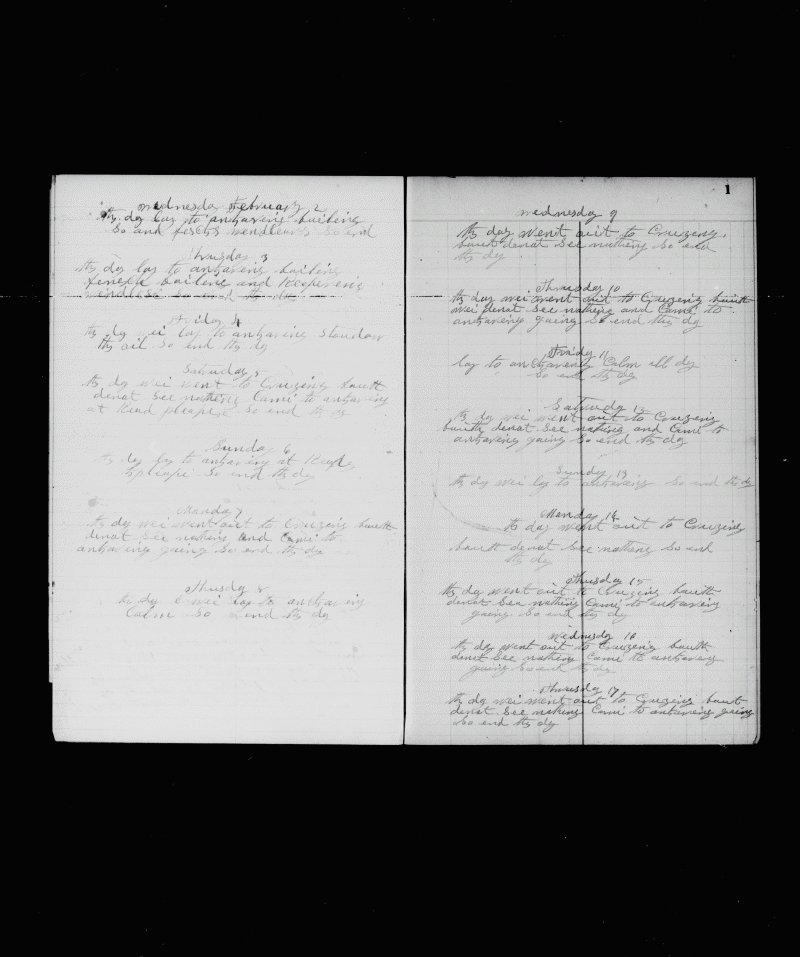 wednesday February 2
ths day lay to anharing bailing
So and fixses wendlears So end
Thursday 3
ths day lay to anharing bailing
bailine and Keepering
So end ths da
Friday 4
ths dy wei lay to anharing
ths oil So end ths dy
Saturday 5
ths dy wei went to Cruzeing bautt
denat See nothing Cami to anharing
at So end ths dy
Sunday 6
ths day lay to anharing at
So end ths dy
Monday 7
ths dy wei went out to Cruzeing bautt
denat See nothing and Cami to
anharing going So end ths dy
Thusday 8
ths dy wei lay to anharing
Calm So end ths dy
1
wednesday 9
ths day went auit to Cruzeing,
bautt denat See nathing So end
ths dy
Thursday 10
ths day wei went out to Cruzeing bautt
wei denat See nathing and Cami to
anharing going So end ths dy
Friday 11
lay to anharing Calm all dy
So end ths dy
Saturday 12
ths dy wei went out to Cruzeing
bautt denat See nathing and Cami to
anharing going So end ths dy
Sunday 13
ths dy wei lay to anharing So end ths dy
Monday 14
ths day went out to Cruzeing
bautt denat See nathing So end
ths dy
Thusday 15
ths dy went out to Cruzeing bautt
denat See nathing Cami to anharing
going So end ths dy
Wednesdy 16
ths dy went out to Cruzeing bautt
denat See nathing Cami to anharing
going So end ths dy
Thusday 17
ths dy wei went out to Cruzeing bautt
denat See nathing Cami to anharing going
So end ths dy